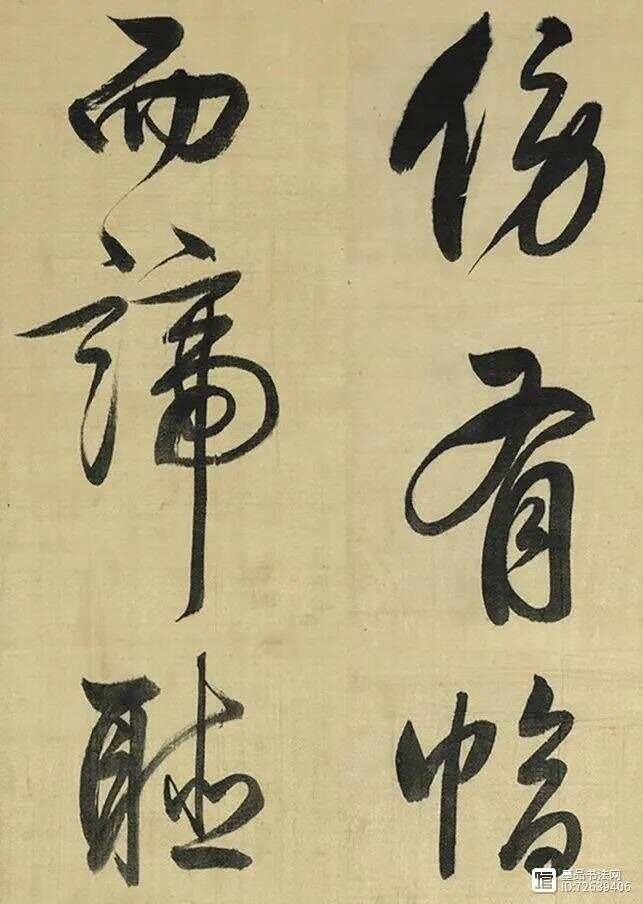 傍有幅
而諦聽
墨品书法网
ID:72639406